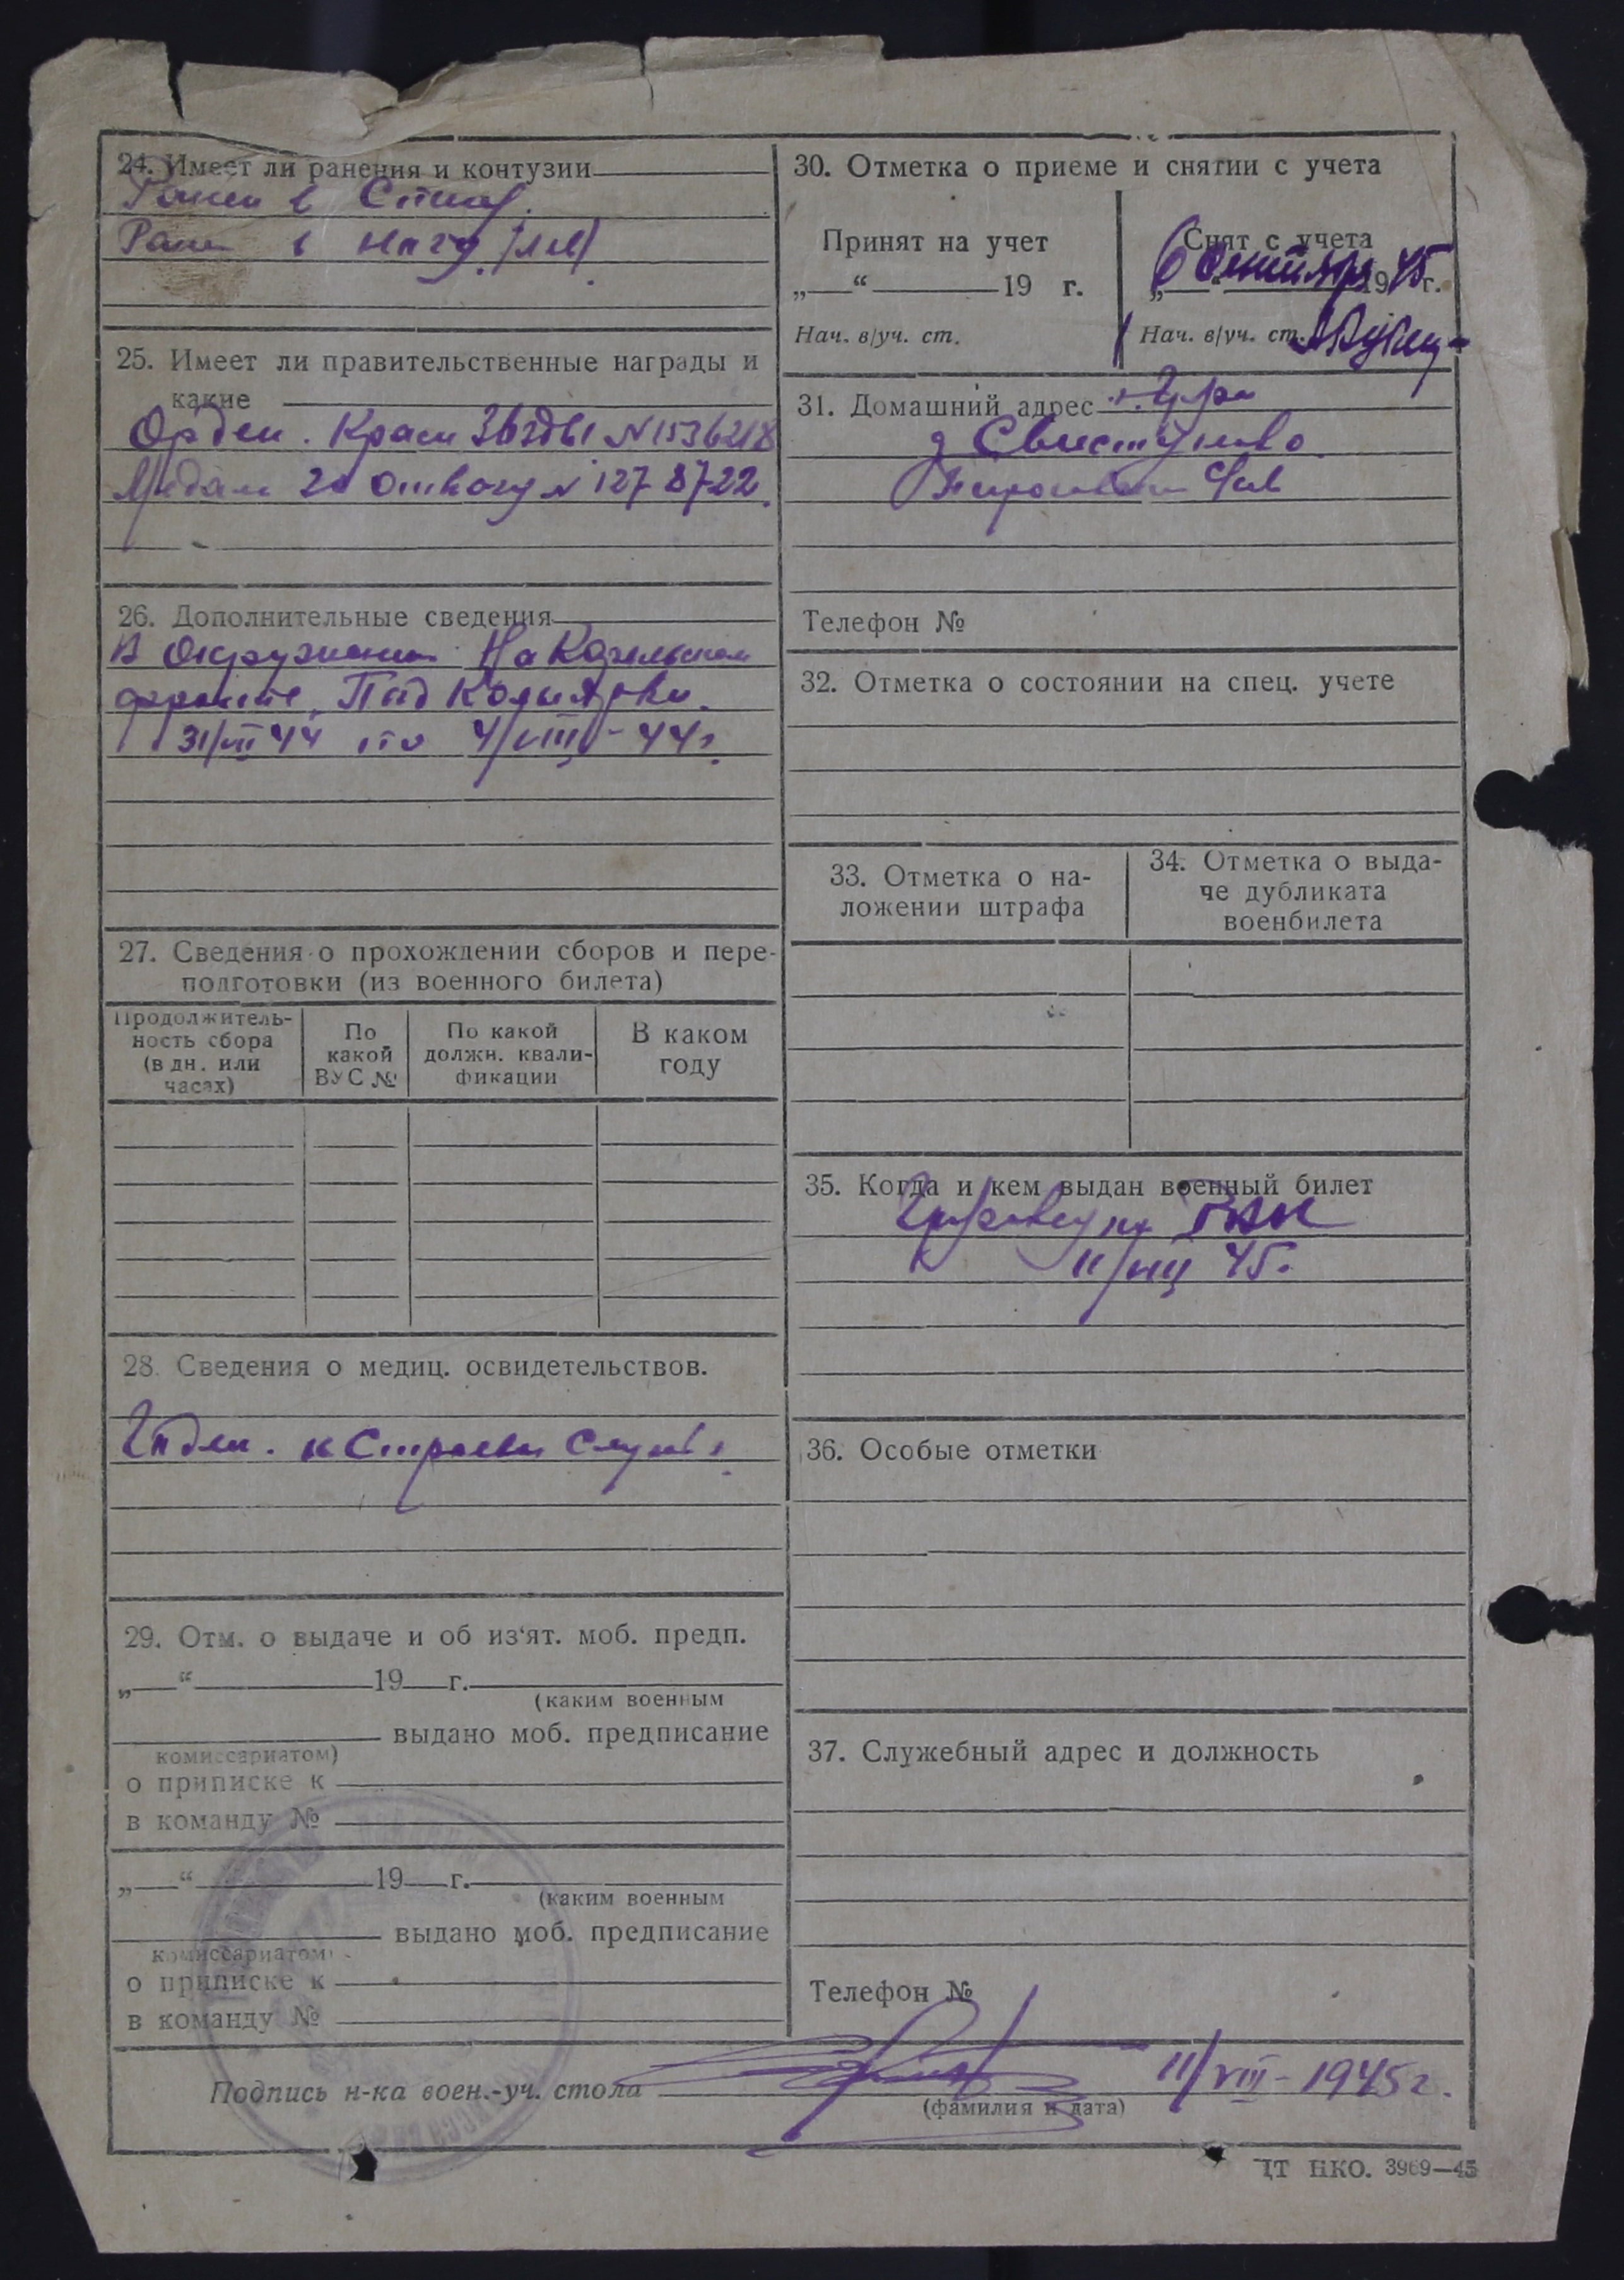 24. Имеет ли ранения и контузии
Ранен в
Ранен в ногу
25. Имеет ли правительственные награды и
какие
Орден. Красн Звезды N 1536218
Медаль за отвагу N 1278722.
26. Дополнительные сведения
В окружении На
фронте, Под
31/VII 44 по 4/VIII - 44 г.
27. Сведения о прохождении сборов и пере-
подготовки (из военного билета)
Продолжитель-
ность сбора
(в дн. или
часах)
По
какой
ВУС №
По какой
должн. квали-
фикации
В каком
году
28. Сведения о медиц. освидетельствов.
Годен. к строевой службе
29. Отм. о выдаче и об из'ят. моб. предп.
„ “ 19 г.
(каким военным
выдано моб. предписание
комиссариатом)
о приписке к
в команду №
„ “ 19 г.
(каким военным
выдано моб. предписание
комиссариатом)
о приписке к
в команду №
30. Отметка о приеме и снятии с учета
Принят на учет
„ “ 19 г.
Нач. в/уч. ст.
Снят с учета
„6“ Сентября 1945 г.
Нач. в/уч. ст.
31. Домашний адрес
д Свистуново
Телефон №
32. Отметка о состоянии на спец. учете
33. Отметка о на-
ложении штрафа
34. Отметка о выда-
че дубликата
военбилета
35. Когда и кем выдан военный билет
РВК
11/VIII 45.
36. Особые отметки
37. Служебный адрес и должность
Телефон №
Подпись н-ка воен.-уч. стола
11/VIII - 1945 г.
(фамилия и дата)
ЦТ НКО. 3969—45